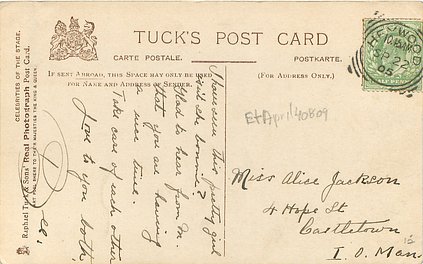 TUCK'S POST CARD
CARTE POSTALE. POSTKARTE.
IF SENT ABROAD, THIS SPACE MAY ONLY BE USED
FOR NAME AND ADDRESS OF SENDER.
(FOR ADDRESS ONLY.)
CELEBRITIES OF THE STAGE.
Raphael Tuck & Sons' Real Photograph Post Card.
ART PUBLISHERS TO THEIR MAJESTIES THE KING & QUEEN
HEYWOOD
SP 22
05
I have seen this pretty girl
isnt she bonnie?
Glad to hear from M.
that you are having
a nice time.
Take care of each other
Love to you both.
E+April40809
Miss Alice Jackson
4 Hope St
Castletown
I. O. Man